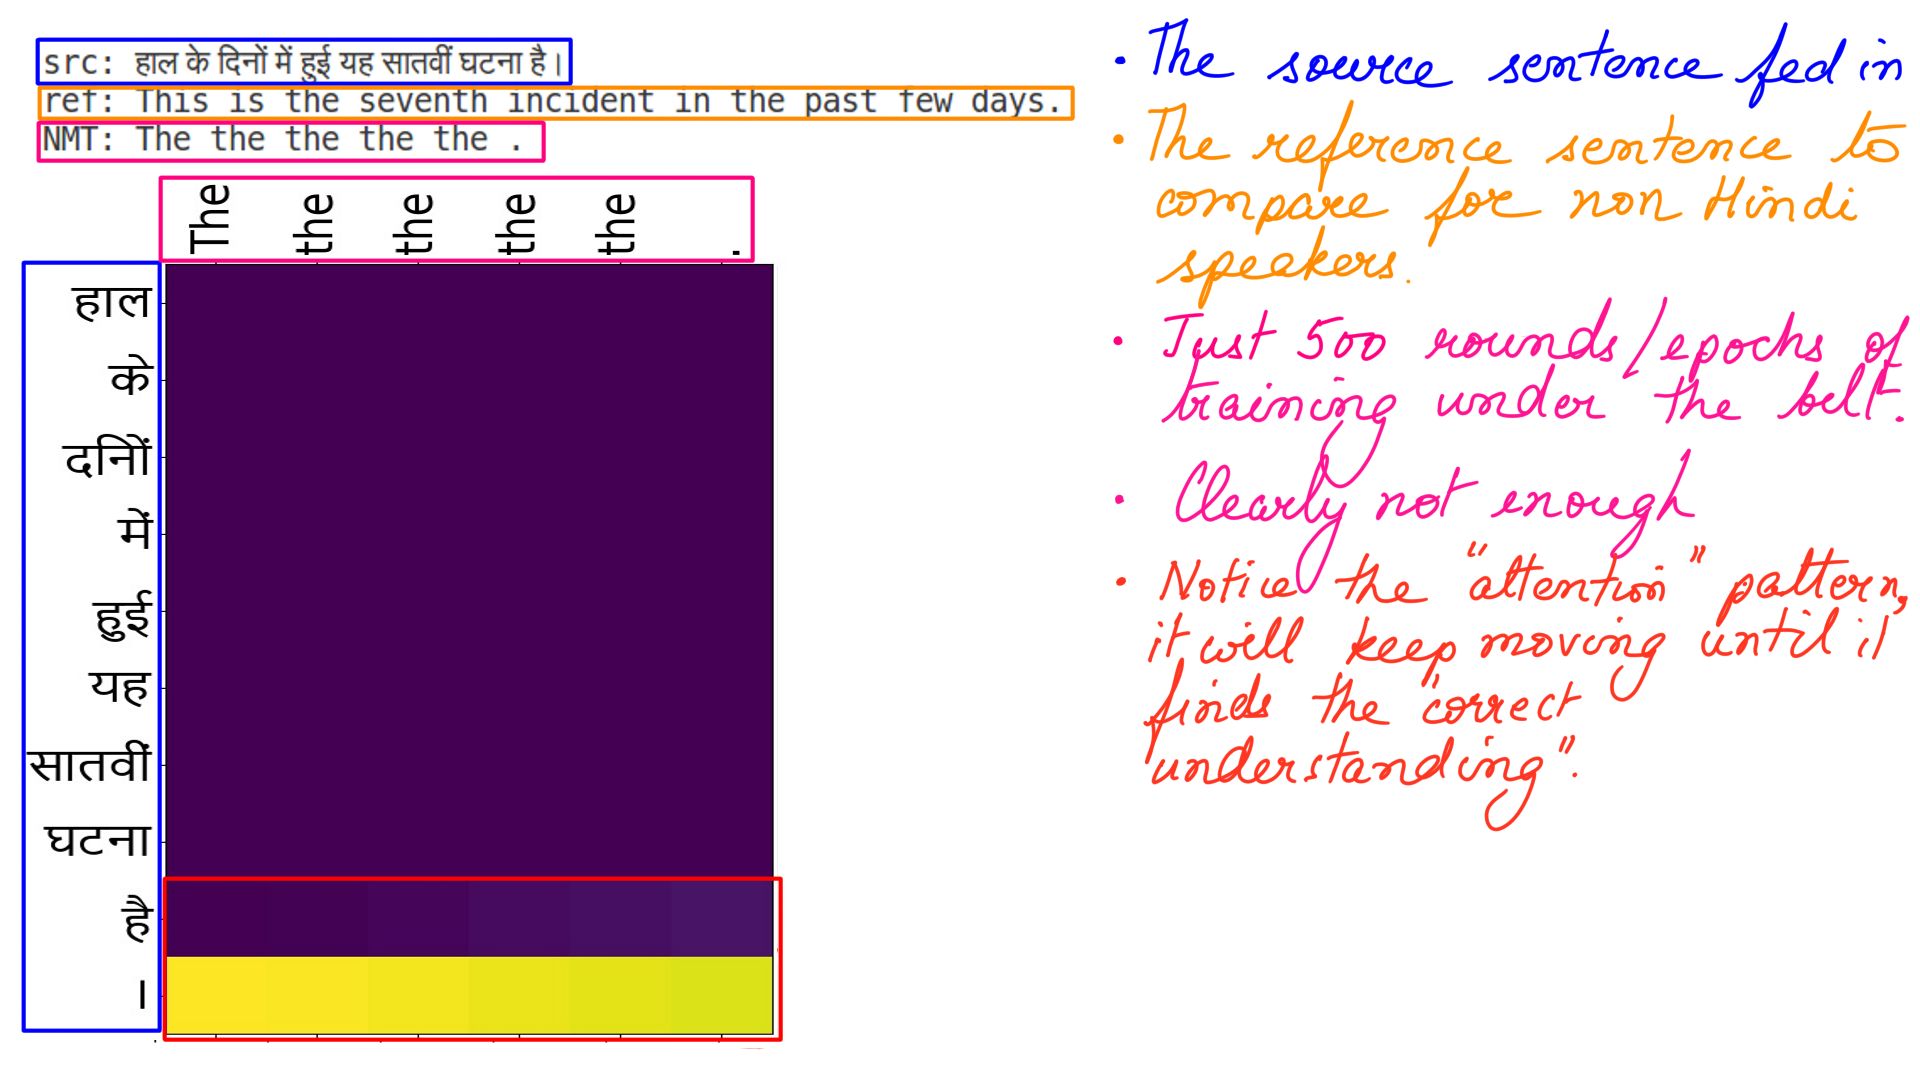 src: हाल के दिनों में हुई यह सातवीं घटना है।
ref: This is the seventh incident in the past few days.
NMT: The the the the the .
The the the the the .
हाल
के
दिनों
में
हुई
यह
सातवीं
घटना
है
।
• The source sentence fed in
• The reference sentence to
compare for non Hindi
speakers.
• Just 500 rounds/epochs of
training under the belt.
• Clearly not enough
• Notice the "attention" pattern,
it will keep moving until it
finds the "correct
understanding".